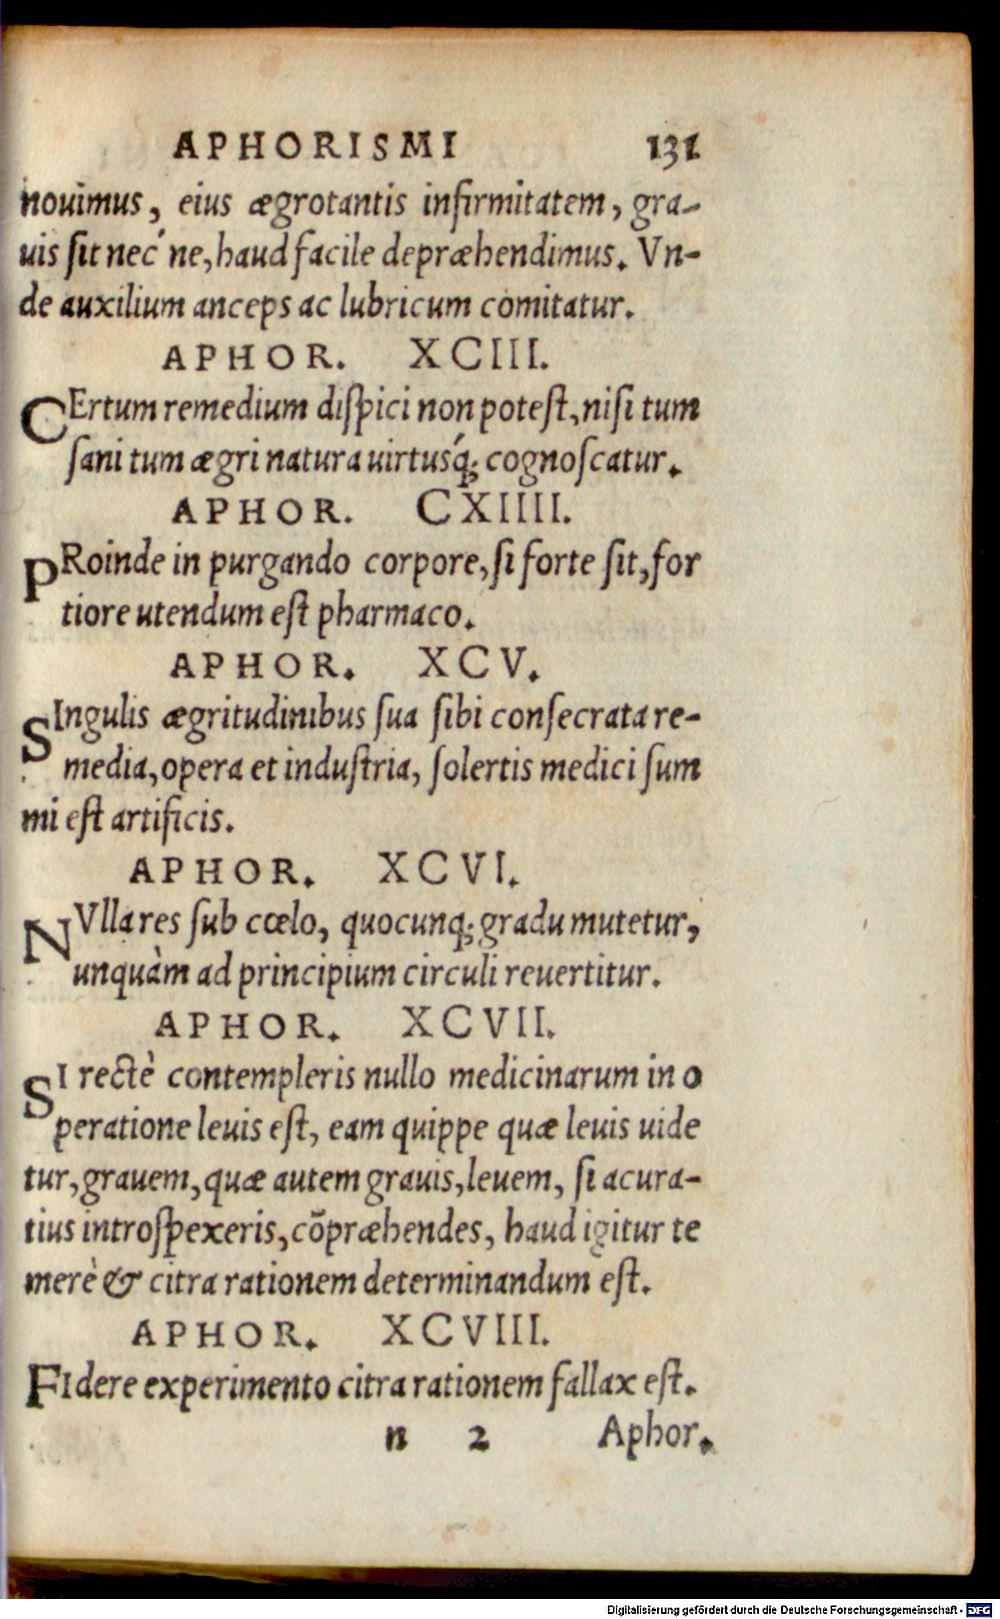 APHORISMI 131
nouimus, eius ægrotantis infirmitatem, gra-
uis sit nec ne, haud facile depræhendimus. Vn-
de auxilium anceps ac lubricum comitatur.
APHOR. XCIII.
CErtum remedium dispici non potest, nisi tum
sani tum ægri natura uirtusq́; cognoscatur.
APHOR. CXIIII.
PRoinde in purgando corpore, si forte sit, for
tiore utendum est pharmaco.
APHOR. XCV.
SIngulis ægritudinibus sua sibi consecrata re-
media, opera et industria, solertis medici sum
mi est artificis.
APHOR. XCVI.
NVlla res sub cœlo, quocunq; gradu mutetur,
unquàm ad principium circuli reuertitur.
APHOR. XCVII.
SI rectè contempleris nullo medicinarum in o
peratione leuis est, eam quippe quæ leuis uide
tur, grauem, quæ autem grauis, leuem, si acura-
tius introspexeris, cõpræhendes, haud igitur te
merè & citra rationem determinandum est.
APHOR. XCVIII.
FIdere experimento citra rationem fallax est.
n 2 Aphor.
Digitalisierung gefördert durch die Deutsche Forschungsgemeinschaft - DFG